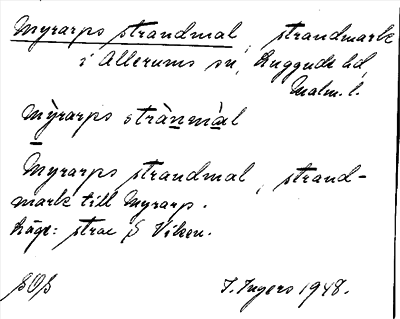 Myrarps strandmal, strandmark
i Allerums sn, Luggude hd,
Malm. l.
Mỳrarps strànmàl
Myrarps strandmal, strand-
mark till Myrarp.
Läge: strax S Viken.
SOS I. Ingers 1948.